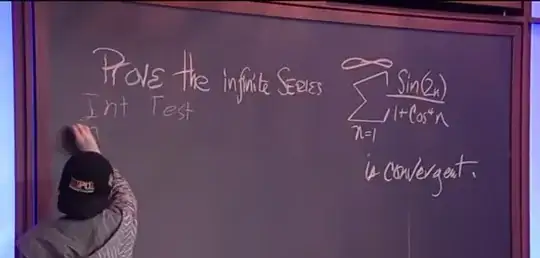 Prove the infinite Series
∞
∑ Sin(2n)
1+Cos⁴n
n=1
is convergent.
Int Test